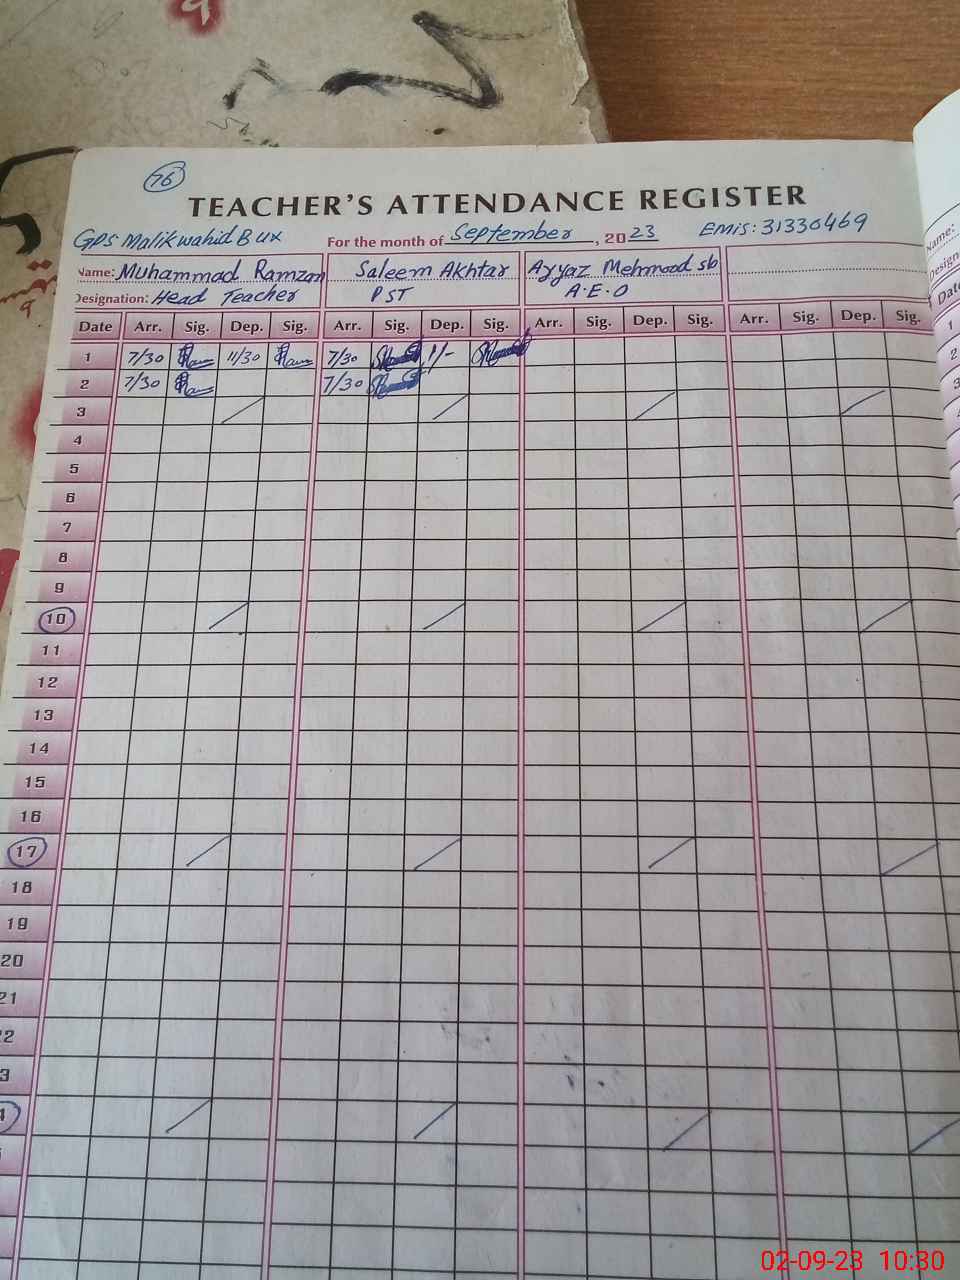 76
TEACHER'S ATTENDANCE REGISTER
GPS Malikwahid Bux For the month of September, 2023 EMIS: 31330469
Name: Muhammad Ramzan Saleem Akhtar Ayyaz Mehmood sb Name:
Designation: Head Teacher PST A.E.O
Date Arr. Sig. Dep. Sig. Arr. Sig. Dep. Sig. Arr. Sig. Dep. Sig. Arr. Sig. Dep. Sig. Date
1 7/30 11/30 7/30 1/- 1
2 7/30 7/30 2
3 3
4
5
6
7
8
9
10
11
12
13
14
15
16
17
18
19
20
21
22
3
4
02-09-23 10:30